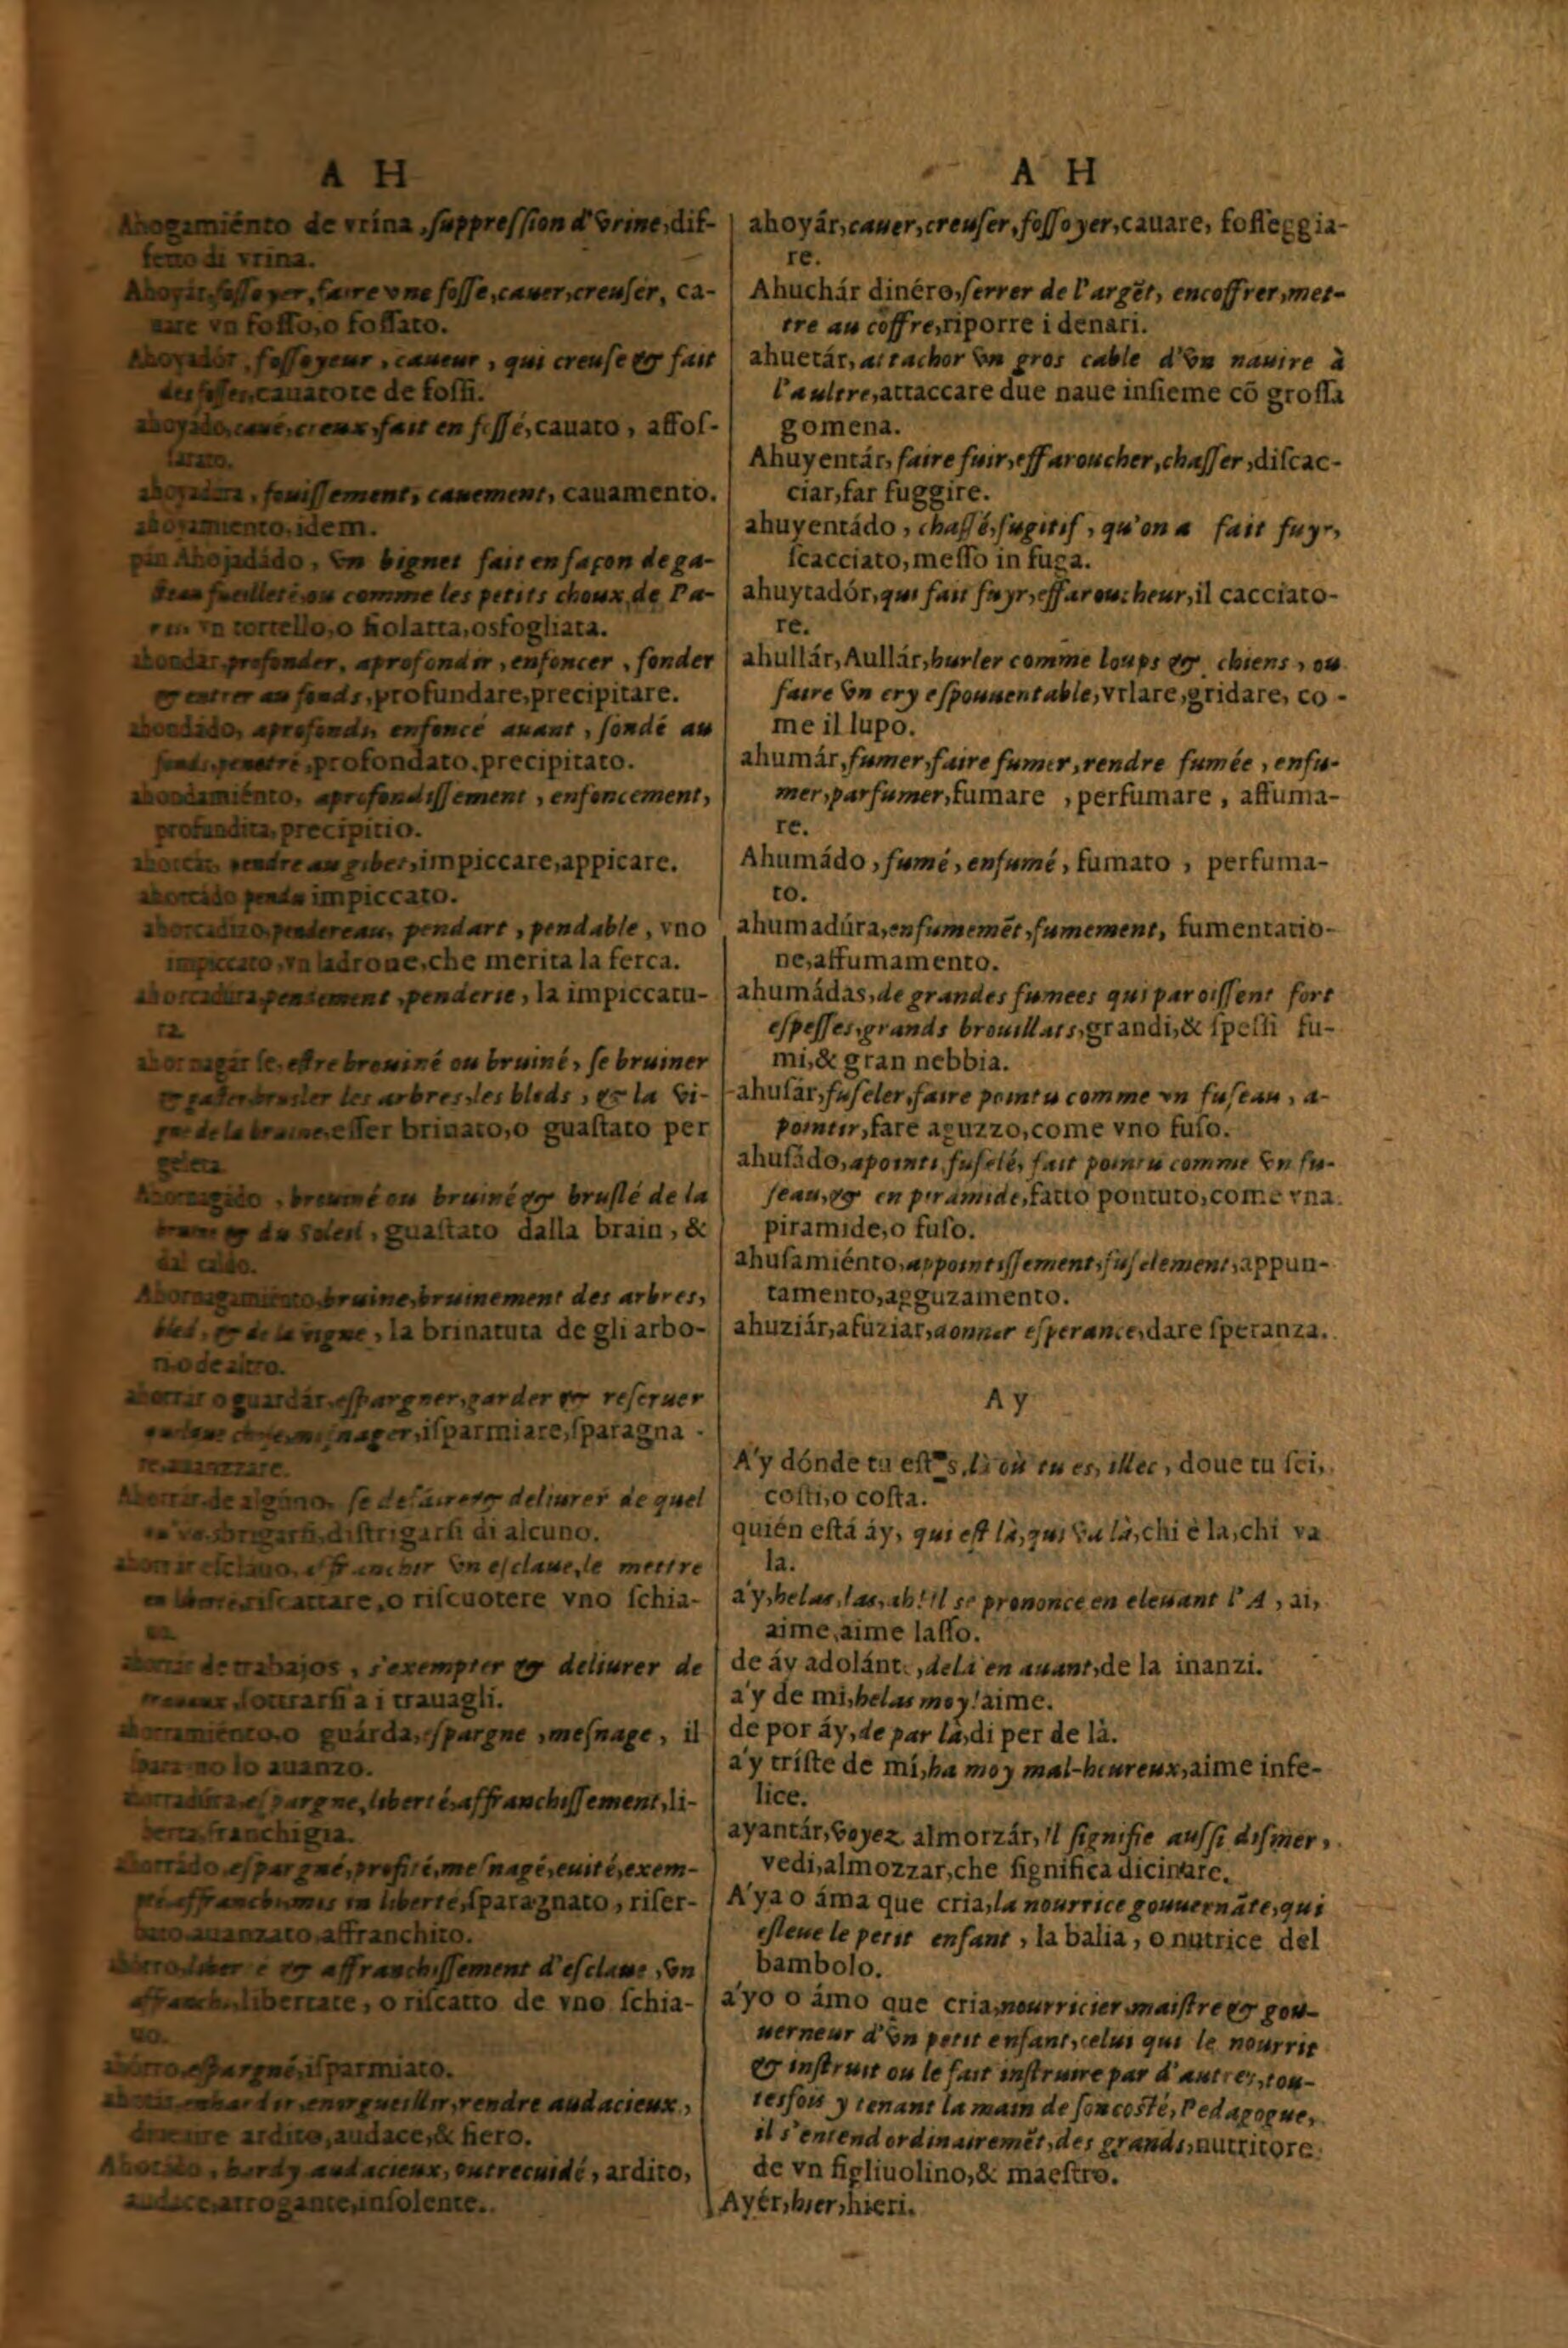 A H
Ahogamiénto de vrína, ſuppreſſion d'vrine, dif-
fetto di vrina.
faire vne foſſe, cauer, creuſer, ca-
uare vn foſſo, o foſſato.
foſſoyeur, caueur, qui creuſe & fait
des foſſes, cauatore de foſſi.
ahoyádo, caué, creux, fait en foſſé, cauato, affoſ-
ahoyadúra, fouiſſement, cauement, cauamento.
ahoyamiento, idem.
pan Ahojadádo, vn bignet fait en façon de ga-
fueilleté, ou comme les petits choux de Pa-
vn tortello, o fiolatta, osfogliata.
ahondár, profonder, aprofondir, enfoncer, fonder
& entrer au fonds, profundare, precipitare.
ahondádo, aprofondi, enfoncé auant, fondé au
penetré, profondato, precipitato.
ahondamiénto, aprofondiſſement, enfoncement,
profundita, precipitio.
pendre au gibet, impiccare, appicare.
ahorcádo pendu impiccato.
ahorcadizo, pendereau, pendart, pendable, vno
impiccato, vn ladrone, che merita la ferca.
ahorcadúra, pendement, penderie, la impiccatu-
ra.
eſtre breuiné ou bruiné, ſe bruiner
& gaſter, bruſler les arbres, les bleds, & la vi-
eſſer brinato, o guaſtato per
breuiné ou bruiné & bruſlé de la
& du Soleil, guaſtato dalla brain, &
dal caldo.
bruine, bruinement des arbres,
bled, & de la vigne, la brinatuta de gli arbo-
ri, o de altro.
ahorrár o guardár, eſpargner, garder & reſeruer
iſparmiare, ſparagna-
Ahorrár de algúno, ſe desfaire & deliurer de quel
diſtrigarſi di alcuno.
affranchir vn eſclaue, le mettre
en liberté, riſcattare, o riſcuotere vno ſchia-
ahorrár de trabajos, s'exempter & deliurer de
ſottrarſi a i trauagli.
ahorramiénto, o guárda, eſpargne, meſnage, il
lo auanzo.
eſpargne, liberté, affranchiſſement, li-
berta, franchigia.
ahorrádo, eſpargné, profité, meſnagé, euité, exem-
mis en liberté, ſparagnato, riſer-
bato, auanzato, affranchito.
& affranchiſſement d'eſclaue, vn
affranchi, libertate, o riſcatto de vno ſchia-
uo.
ahórro, eſpargné, iſparmiato.
enhardir, enorgueillir, rendre audacieux,
ardito, audace, & fiero.
hardy audacieux, outrecuidé, ardito,
audace, arrogante, inſolente.
A H
ahoyár, cauer, creuſer, foſſoyer, cauare, foſſeggia-
re.
Ahuchár dinéro, ſerrer de l'argẽt, encoffrer, met-
tre au coffre, riporre i denari.
ahuetár, attachor vn gros cable d'vn nauire à
l'aultre, attaccare due naue inſieme cõ groſſa
gomena.
Ahuyentár, faire fuir, effaroucher, chaſſer, diſcac-
ciar, far fuggire.
ahuyentádo, chaſſé, fugitif, qu'on a fait fuyr,
ſcacciato, meſſo in fuga.
ahuytadór, qui fait fuyr, effaroucheur, il cacciato-
re.
ahullár, Aullár, hurler comme loups & chiens, ou
faire vn cry eſpouuentable, vrlare, gridare, co-
me il lupo.
ahumár, fumer, faire fumer, rendre fumée, enfu-
mer, parfumer, fumare, perfumare, affuma-
re.
Ahumádo, fumé, enfumé, fumato, perfuma-
to.
ahumadúra, enfumemẽt, fumement, fumentatio-
ne, affumamento.
ahumádas, de grandes fumees qui paroiſſent fort
eſpeſſes, grands brouillats, grandi, & ſpeſſi fu-
mi, & gran nebbia.
ahuſár, fuſeler, faire pointu comme vn fuſeau, a-
pointir, fare aguzzo, come vno fuſo.
ahuſádo, apointi, fuſelé, fait pointu comme vn fu-
ſeau, & en piramide, fatto pontuto, come vna
piramide, o fuſo.
ahuſamiénto, appointiſſement, fuſelement, appun-
tamento, agguzamento.
ahuziár, afuziar, donner eſperance, dare ſperanza.
A y
A'y dónde tu là où tu es, illec, doue tu ſei,
coſti, o coſta.
quién eſtá áy, qui eſt là, qui va là, chi è la, chi va
la.
a'y, helas, las, ah! il se prononce en eleuant l'A, ai,
aime, aime laſſo.
de áy adolánt., delà en auant, de la inanzi.
a'y de mi, helas moy! aime.
de por áy, de par là, di per de là.
a'y tríſte de mí, ha moy mal-heureux, aime infe-
lice.
ayantár, voyez almorzár, il ſignifie auſſi diſner,
vedi, almozzar, che ſignifica dicinare.
A'ya o áma que cria, la nourrice gouuernãte, qui
eſleue le petit enfant, la balia, o nutrice del
bambolo.
a'yo o ámo que cria, nourricier, maiſtre & gou-
uerneur d'vn petit enfant, celui qui le nourrit
& inſtruit ou le fait inſtruire par d'autres, tou-
tesfois y tenant la main de ſon coſté, Pedagogue,
il s'entend ordinairemẽt, des grands, nutritore
de vn figliuolino, & maeſtro.
Ayér, hier, hieri.